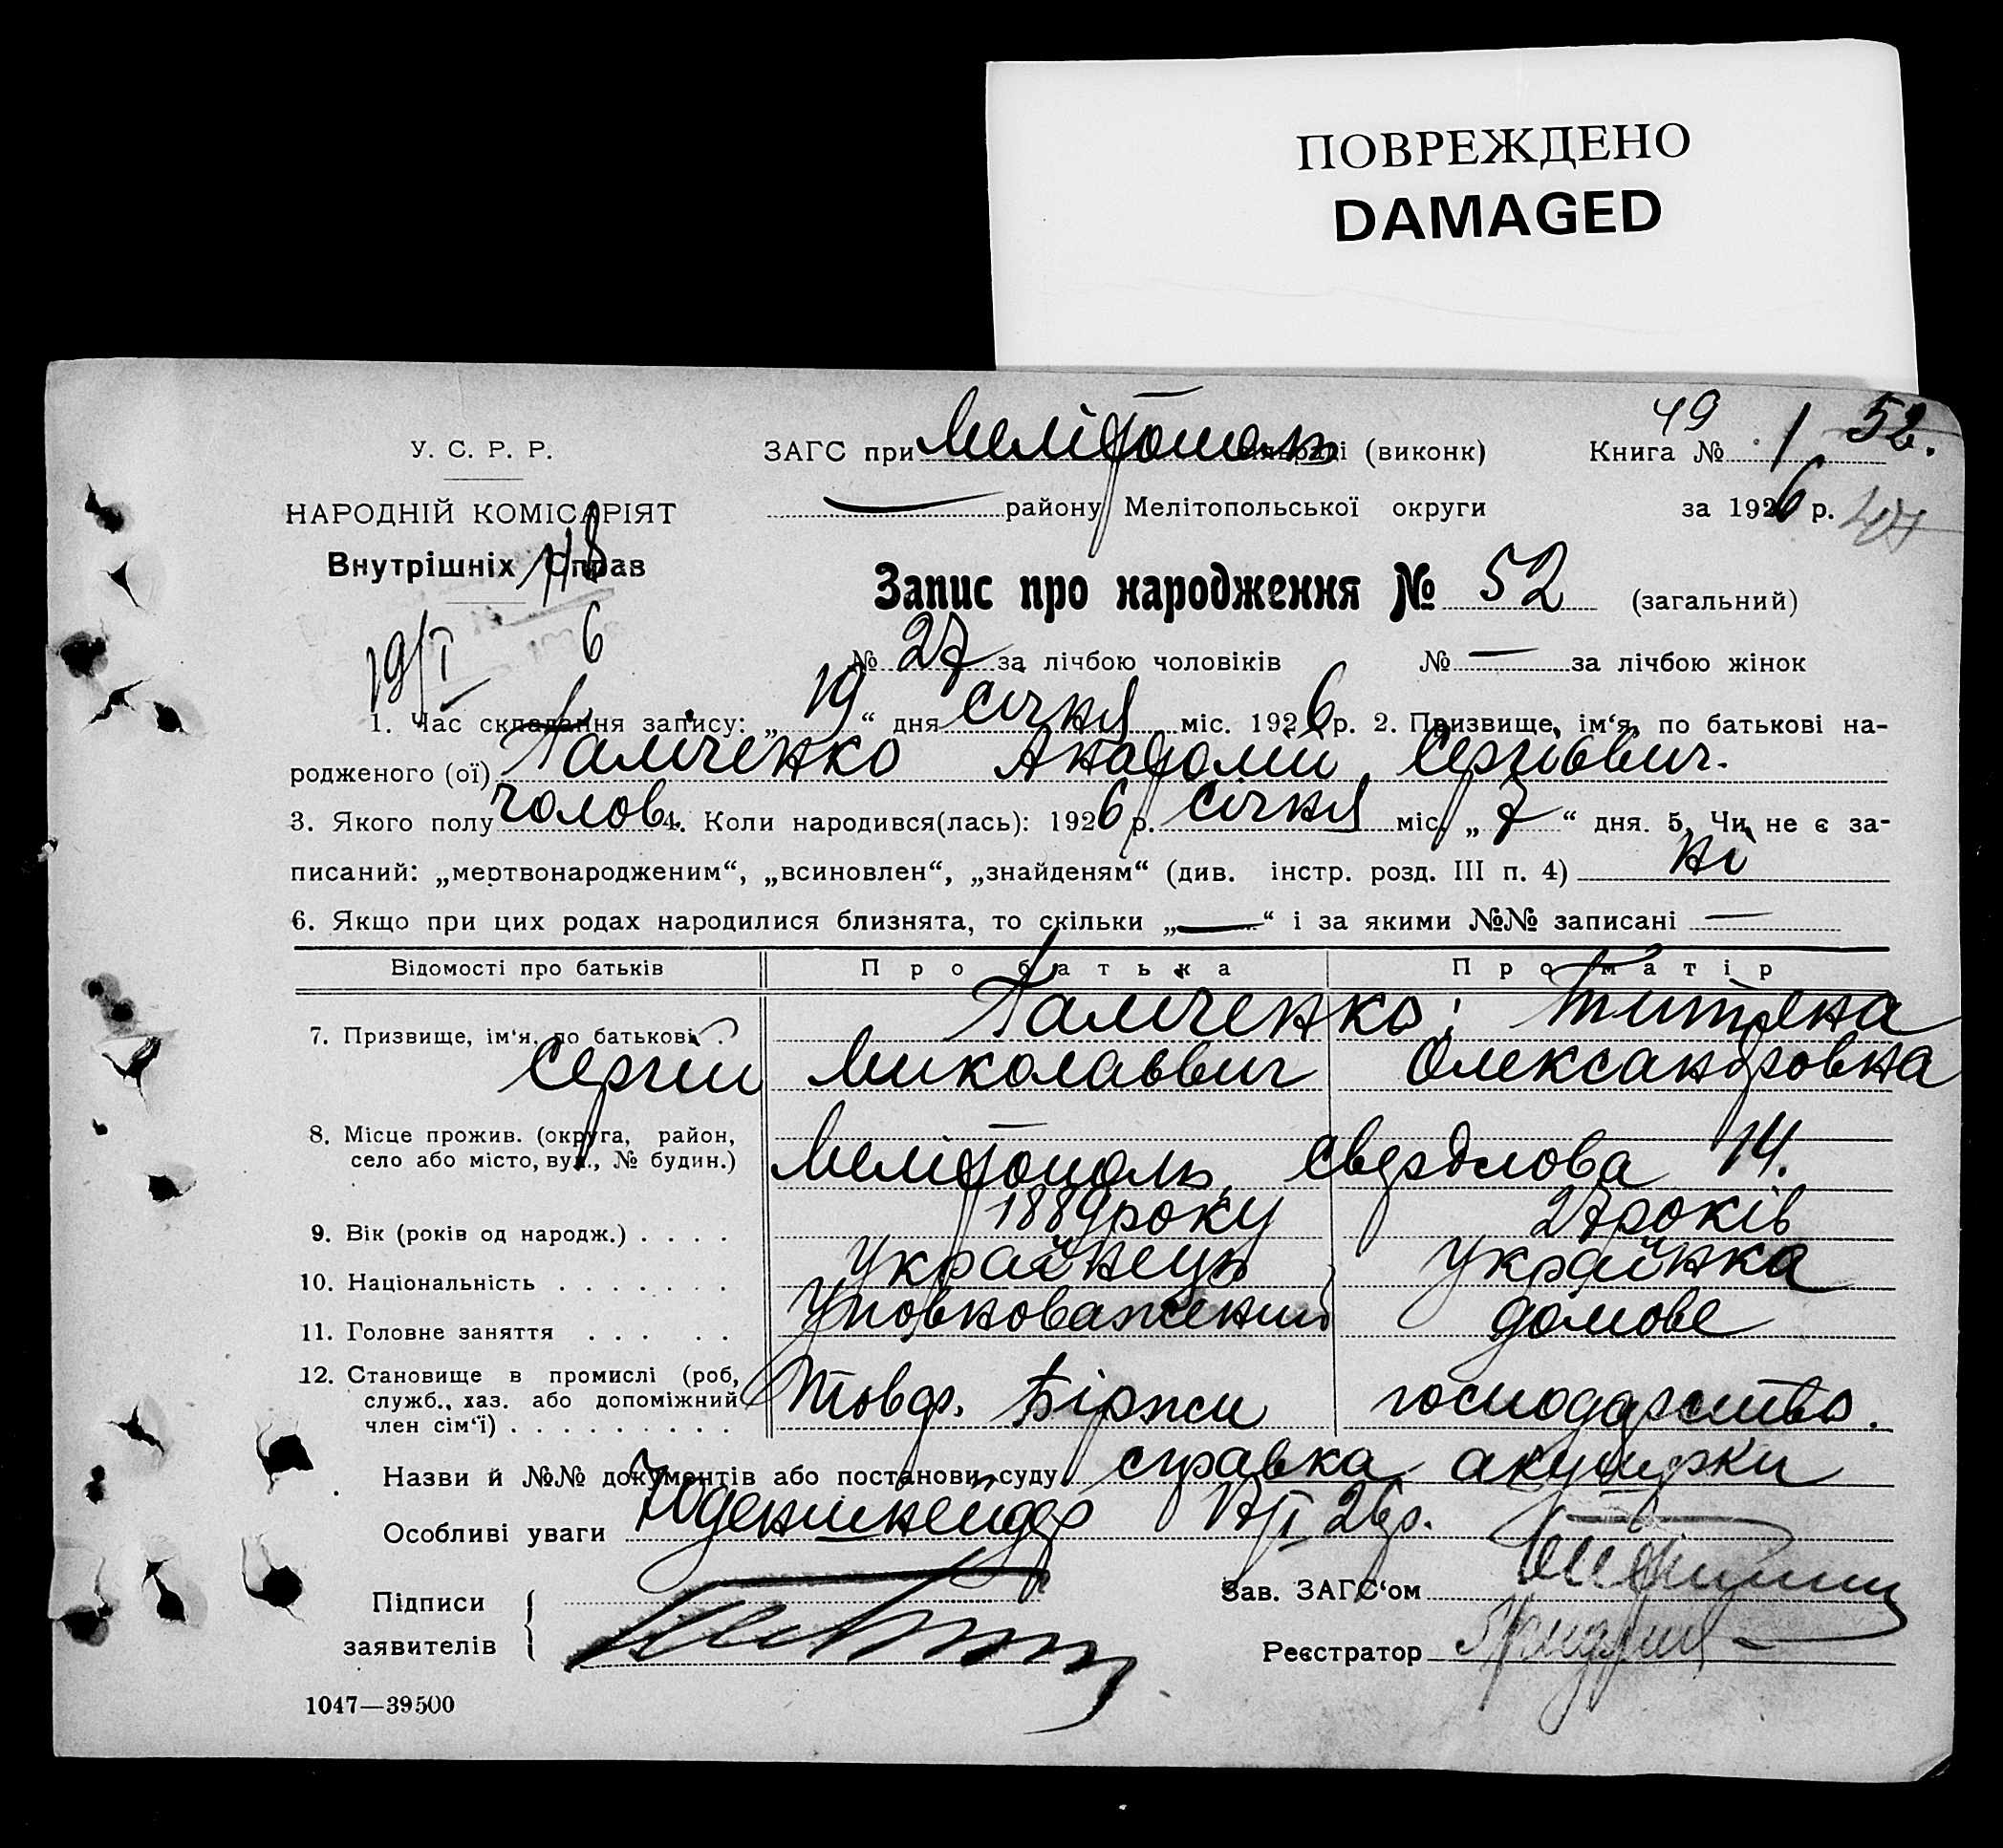 ПОВРЕЖДЕНО
DAMAGED
49 52.
У. С. Р. Р. ЗАГС при Мелітополь (виконк) Книга № 1
НАРОДНІЙ КОМІСАРІЯТ — району Мелітопольської округи за 1926 р.
Внутрішніх Справ
Запис про народження № 52 (загальний)
19/I 6
№ 27 за лічбою чоловіків № — за лічбою жінок
1. Час складання запису: „19“ дня січня міс. 1926 р. 2. Призвище, ім‘я, по батькові на-
родженого (ої) Анатолій Сергієвич.
3. Якого полу чолов. 4. Коли народився(лась): 1926 р. січня міс. „7“ дня. 5. Чи не є за-
писаний: „мертвонародженим“, „всиновлен“, „знайденям“ (див. інстр. розд. III п. 4) ні
6. Якщо при цих родах народилися близнята, то скільки „—“ і за якими №№ записані —
Відомості про батьків Про батька Про матір
7. Призвище, ім‘я, по батькові.
Сергій Миколаєвич Олександровна
8. Місце прожив. (округа, район,
село або місто, вул., № будин.) Мелітополь, Свердлова 14.
9. Вік (років од народж.) . . . . 1889 року 27 років
10. Національність . . . . . . . Українець Українка
11. Головне заняття . . . . . Уповноважений домове
12. Становище в промислі (роб,
служб., хаз. або допоміжний Товар. Біржи господарство.
член сім‘ї) . . . . . . . . .
Назви й №№ документів або постанови суду справка акушерки
Особливі уваги 26 р.
Підписи
заявителів
Зав. ЗАГС‘ом
Реєстратор
1047—39500